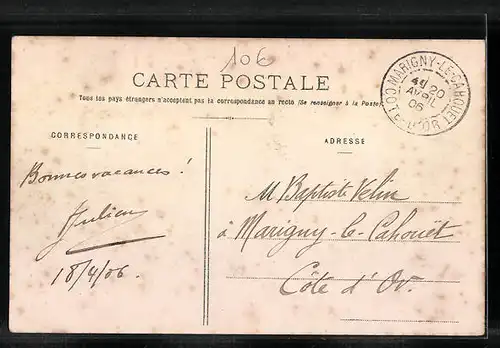 106
CARTE POSTALE
Tous les pays étrangers n'acceptent pas la correspondance au recto (Se renseigner à la Poste)
MARIGNY-LE-CAHOUET
20
AVRIL
06
COTE-D'OR
CORRESPONDANCE
ADRESSE
Bonnes vacances !
Julien
18/4/06.
M Baptiste Velin
à Marigny-le-Cahouët
Côte d'Or.